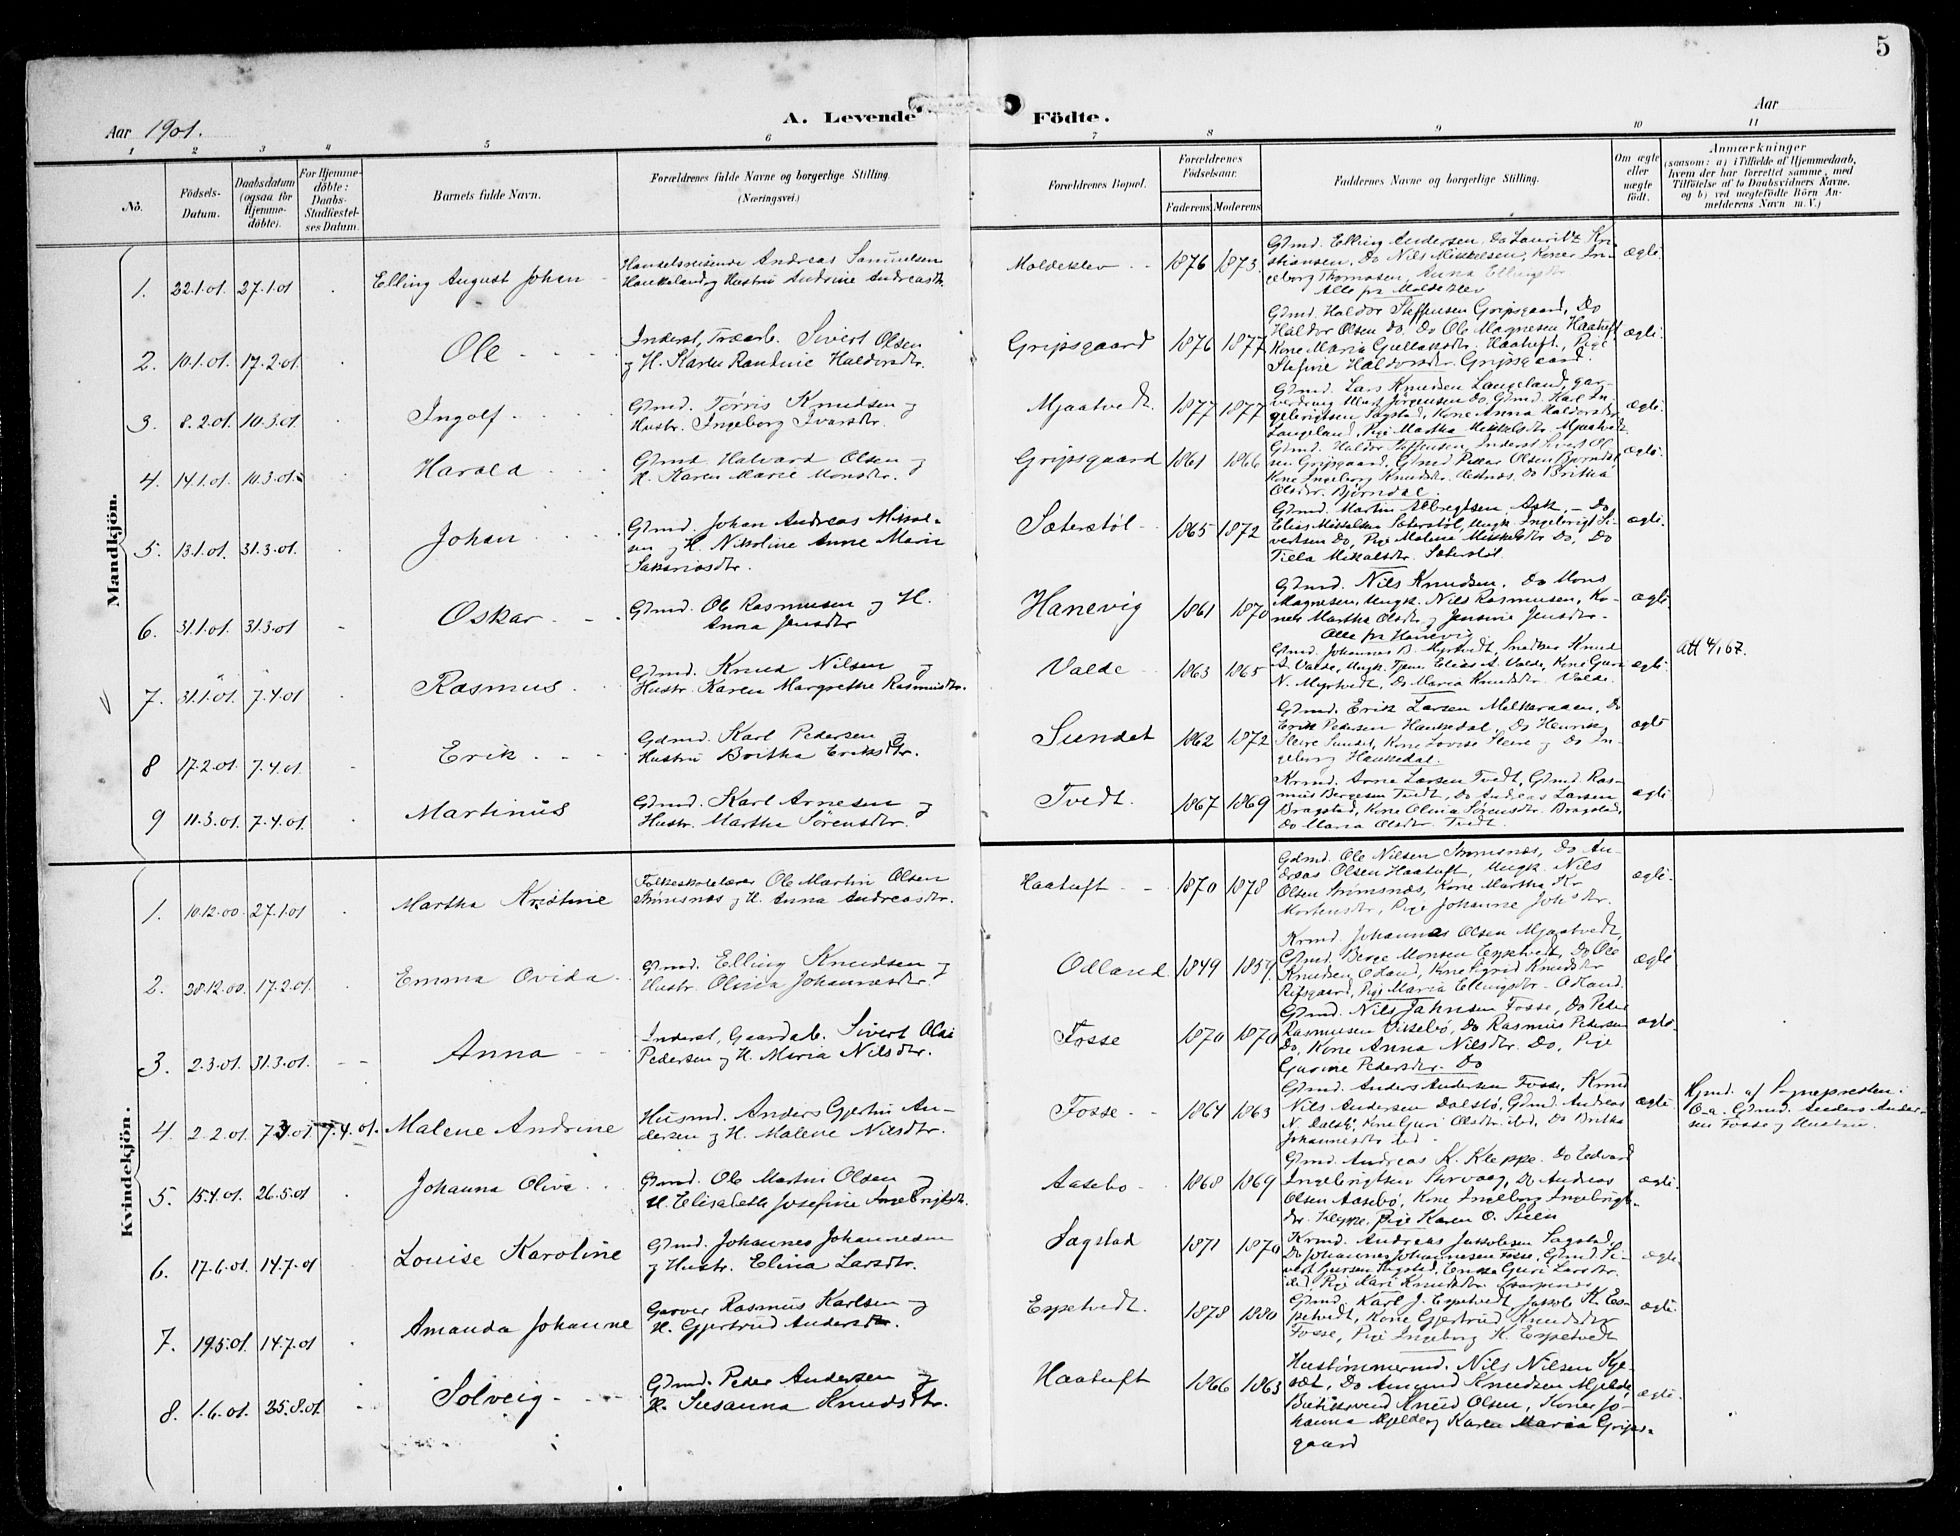 5
Aar 1901.
A. Levende Födte.
Aar
1 2 3 4 5 6 7 8 9 10 11
No.
Födsels-Datum.
Daabsdatum (ogsaa for Hjemme-döbte).
For Hjemme-döbte: Daabs-Stadfæstel-ses Datum.
Barnets fulde Navn.
Forældrenes fulde Navne og borgerlige Stilling. (Næringsvei.)
Forældrenes Bopæl.
Forældrenes Födselsaar.
Faderens Moderens
Faddernes Navne og borgerlige Stilling.
Om ægte eller uægte födt.
Anmærkninger
(saasom: a) i Tilfælde af Hjemmedaab,
hvem der har forrettet samme, med
Tilföielse af to Daabsvidners Navne.
og b) ved uægtefödte Börn An-
melderens Navn m. V.)
Mandkjön.
1. 22.1.01. 27.1.01 Elling August Johan
Handelsreisende Andreas Samuelsen
Haukeland og Hustru Andrine Andreasdtr.
Moldeklev 1876 1873.
Gdmd. Elling Andersen, Do Lauritz Kri-
stiansen, Do Nils Mikkelsen, Koner In-
geborg Thomasen, Anna Ellingsdtr
Alle fra Moldeklev
ægte.
2. 10.1.01. 17.2.01. Ole
Inderst, Træarb. Sivert Olsen
og H. Karen Randine Haldorsdtr.
Gripsgaard 1876 1877
Gdmd. Haldor Steffensen Gripsgaard, Do
Haldor Olsen do, Do Ole Magnesen Haatuft
Kone Maria Gullaksdtr. Haatuft, Pige
Stefine Haldorsdtr. Gripsgaard.
ægte.
3. 8.2.01. 10.3.01 Ingolf
Gdmd. Tørris Knudsen og
Hustr. Ingeborg Ivarsdtr.
Mjaatvedt. 1877 1877
Gdmd. Lars Knudsen Langeland, gar-
Jörgensen Do. Gdmd. Karl In-
gebrigtsen Sagstad, Kone Anna Haldorsdtr
Langeland, Pige Martha Mikkelsdtr. Mjaatvedt.
ægte.
4. 14.1.01. 10.3.01. Harald
Gdmd Halvard Olsen og
H. Karen Marie Monsdtr.
Gripsgaard 1861 1866
Gdmd. Haldor Steffensen, Inderst Sivert Ol-
sen Gripsgaard, Gdmd Peder Olsen Bjørndal
Kone Ingeborg Knudsdtr. Do Britha
Olsdtr. Bjørndal.
ægte.
5. 13.1.01. 31.3.01. Johan
Gdmd. Johan Andreas Mikkel-
sen og H. Nikoline Anne Marie
Sakariasdtr.
Sæterstøl 1865 1872
Gdmd. Martin Albregtsen Ask, Do
Elias Mikkelsen Sæterstøl, Ungk. Ingebrigt Si-
vertsen Do, Pige Malene Mikkelsdtr Do, Do
Mikalsdtr. Sæterstøl
ægte.
6. 31.1.01. 31.3.01 Oskar
Gdmd. Ole Rasmusen og H.
Anna Jensdtr
Hanevig 1861 1870
Gdmd. Nils Knudsen, Do Mons
Magnesen, Ungk. Nils Rasmusen, Ko-
nerne Martha Olsdtr og Jensine Jensdtr.
Alle fra Hanevig
ægte.
7. 31.1.01. 7.4.01 Rasmus
Gdmd. Knud Nilsen og
Hustr. Karen Margrethe Rasmusdtr.
Valde 1863 1865
Gdmd. Johannes B. Myrtvedt, Snedker Knud
A. Valde, Ungk. Elias A. Valde, Kone Guri
N. Myrtvedt, Do Maria Knudsdtr. Valde.
ægte. Att 4/1 67.
8 17.2.01. 7.4.01. Erik
Gdmd. Karl Pedersen og
Hustru Britha Eriksdtr.
Sundet 1862 1872
Gdmd. Erik Larsen Do
Erik Pedersen Haukedal, Do Henrik
Steve Sundet, Kone Lovise Steve og Do In-
geborg Haukedal.
ægte
9 11.3.01. 7.4.01. Martinus
Gdmd. Karl Arnesen og
Hustr. Martha Sörensdtr.
Tvedt. 1867 1869
Krmd. Arne Larsen Tvedt, Gdmd. Ras-
mus Børgesen Tvedt, Do Anders Larsen
Bragstad, Kone Oliva Sörensdtr. Bragstad,
Do Maria Olsdtr. Tvedt.
ægte
Kvindekjön.
1. 10.12.00. 27.1.01 Martha Kristine
Folkeskolelærer Ole Martin Olsen
Strömsnes og H. Anna Andreasdtr.
Haatuft 1870 1878
Gdmd. Ole Nilsen Do An-
dreas Olsen Haatuft, Ungk. Nils
Olsen Kone Martha Kr
Mortensdtr, Pige Johanne Johsdtr.
ægte.
2. 28.12.00. 17.2.01. Emma Ovida
Gdmd. Elling Knudsen og
Hustr. Olina Johannesdtr.
Odland 1849 1859
Krmd. Johannes Olsen Mjaatvedt,
Gdmd. Berge Monsen Espetvedt, Do Ole
Knudsen Odland, Kone Sigrid Knudsdtr
Ripsgaard, Pige Maria Ellingsdtr. Odland.
ægte
3. 2.3.01. 31.3.01. Anna
Inderst, Gaardarb. Sivert Olai
Pedersen og H. Maria Nilsdtr.
Fosse 1870 1870
Gdmd. Nils Jahnsen Fosse, Do Peder
Rasmusen Do Rasmus Pedersen
Do, Kone Anna Nilsdtr. Do, Pige
Gurine Pedersdtr. Do
ægte.
4. 2.2.01. 7.3.01 7.4.01. Malene Andrine
Husmd. Anders Gjertin An-
dersen og H. Malene Nilsdtr.
Fosse 1864 1863
Gdmd. Anders Andersen Fosse, Krmd
Nils Andersen Dalstø, Gdmd. Andreas
N. Dalstø, Kone Guri Olsdtr. ibd, Do Britha
Johannesdtr ibd.
ægte
Hjmd. af Sognepresten.
O.a. Gdmd. Anders Ander-
sen Fosse og Hustru.
5. 15.4.01. 26.5.01 Johanna Oliva
Gdmd. Ole Martin Olsen og
H. Elisabeth Josefine Ingebrigtsdtr.
Aasebø 1868 1869
Gdmd. Andreas K. Kleppe. Do Edvard
Ingebrigtsen Do Andreas
Olsen Aasebø, Kone Ingeborg Ingebrigts-
dtr. Kleppe. Pige Karen O. Steen
ægte.
6. 17.6.01. 14.7.01 Louise Karoline
Gdmd. Johannes Johannesen
og Hustr. Elina Larsdtr.
Sagstad 1871 1870
Krmd. Andreas Jakobsen Sagstad,
Do Johannes Johannesen Fosse, Gdmd. Si-
vert Sagstad, Enke Guri Larsdtr.
ibd, Pige Mari Knudsdtr.
ægte.
7. 19.5.01. 14.7.01 Amanda Johanne
Garver Rasmus Karlsen og
H. Gjertrud Andersdtr.
Espetvedt. 1878 1880
Gdmd. Karl J. Espetvedt, Jakob K. Es-
petvedt, Kone Gjertrud Knudsdtr
Fosse, Pige Ingeborg K. Espetvedt
ægte.
8. 1.6.01. 25.8.01 Solveig
Gdmd. Peder Andersen og
H. Susanna Knudsdtr.
Haatuft 1866 1863
Hustömmermd. Nils Nilsen Kje-
Do Amund Knudsen Mjelde,
Knud Olsen, Koner Jo-
hanna Mjelde og Karen Maria Grips-
gaard
ægte.